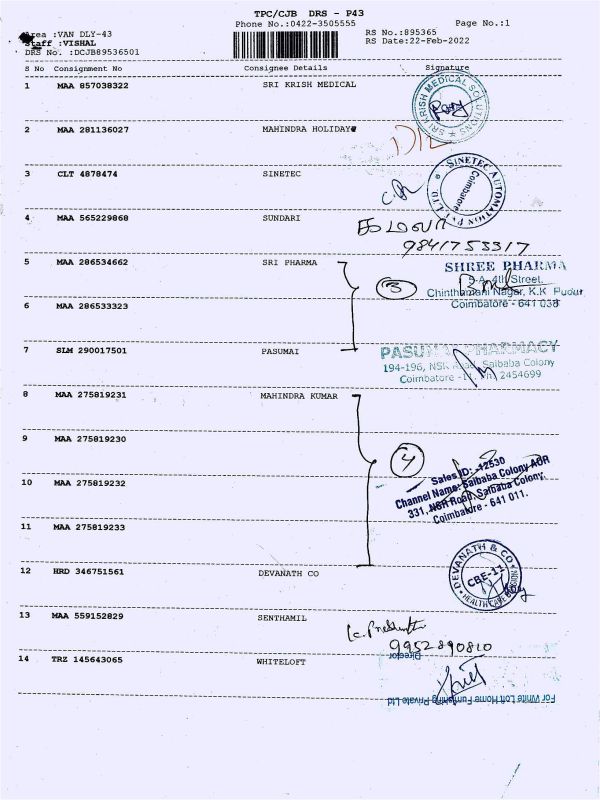 TPC/CJB DRS - P43
Phone No.:0422-3505555
Page No.:1
Area :VAN DLY-43
RS No.:895365
Staff :VISHAL
RS Date:22-Feb-2022
DRS No. :DCJB89536501
S No Consignment No Consignee Details Signature
1 MAA 857038322 SRI KRISH MEDICAL
SRI KRISH MEDICAL SOLUTIONS
2 MAA 281136027 MAHINDRA HOLIDAY
3 CLT 4878474 SINETEC
SINETEC AUTOMATION PVT LTD.
Coimbatore
4 MAA 565229868 SUNDARI
9841753317
5 MAA 286534662 SRI PHARMA
3
SHREE PHARMA
5-A, 4th Street,
Chinthamani Nagar, K.K Pudur
Coimbatore - 641 038
6 MAA 286533323
7 SLM 290017501 PASUMAI
PASUMAI PHARMACY
194-196, NSR Road, Saibaba Colony
Coimbatore - 11. Ph: 2454699
8 MAA 275819231 MAHINDRA KUMAR
9 MAA 275819230
4
Sales ID: 12530
Channel Name: Saibaba Colony AOR
331, NSR Road, Saibaba Colony,
Coimbatore - 641 011.
10 MAA 275819232
11 MAA 275819233
12 HRD 346751561 DEVANATH CO
DEVANATH & CO
CBE-11
13 MAA 559152829 SENTHAMIL
9952890810
14 TRZ 145643065 WHITELOFT
Director
For White Loft Home Furnishing Private Ltd